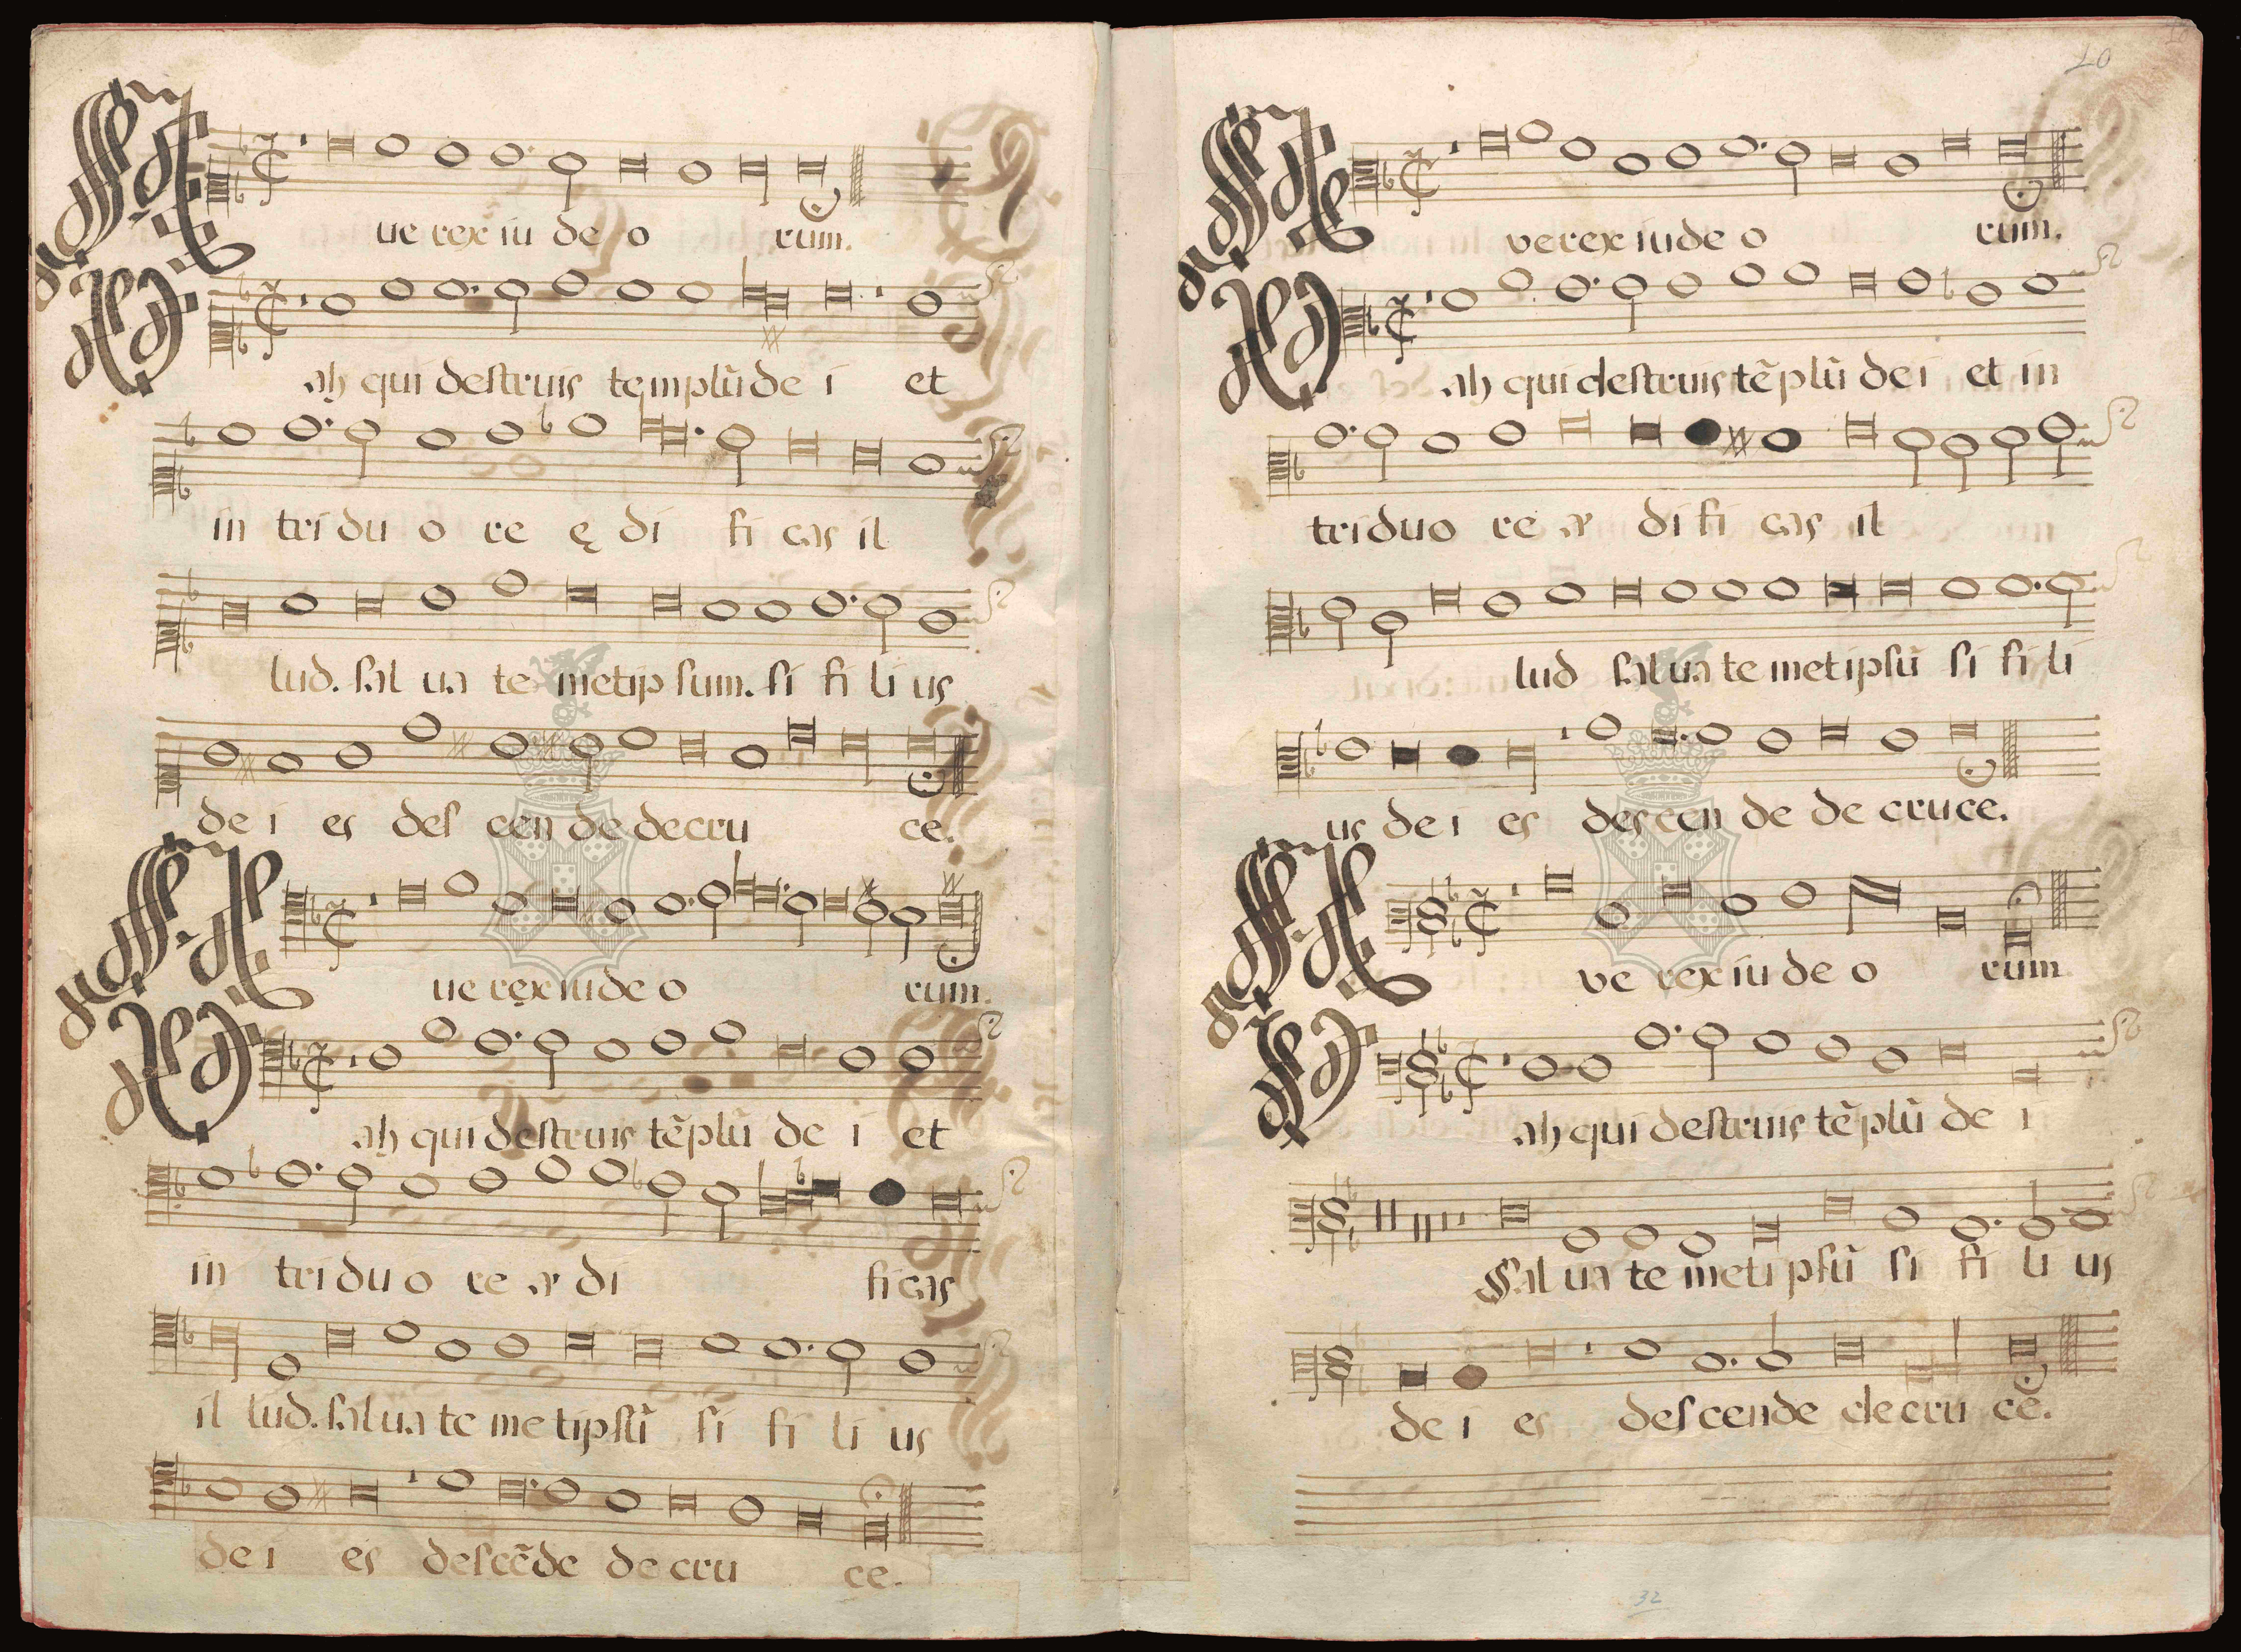 Aue rex iu de o rum.
Uah qui destruis templũ de i et
in tri du o re ę di fi cas il
lud. sal ua te metip sum. si fi li us
de i es des cen de de cru ce.
Aue rex iu de o rum.
Uah qui destruis tẽplũ de i et
in tri du o re æ di fi cas
il lud. sal ua te me tipsũ si fi li us
de i es descẽde de cru ce.
10
Ave rex iu de o rum.
Uah qui destruis tẽ plũ de i et in
tri du o re æ di fi cas il
lud sal ua te met ipsũ si fi li
us de i es des cen de de cru ce.
Ave rex iu de o rum
Uah qui destruis tẽplũ de i
Sal ua te meti psũ si fi li us
de i es descende de cru ce.
32